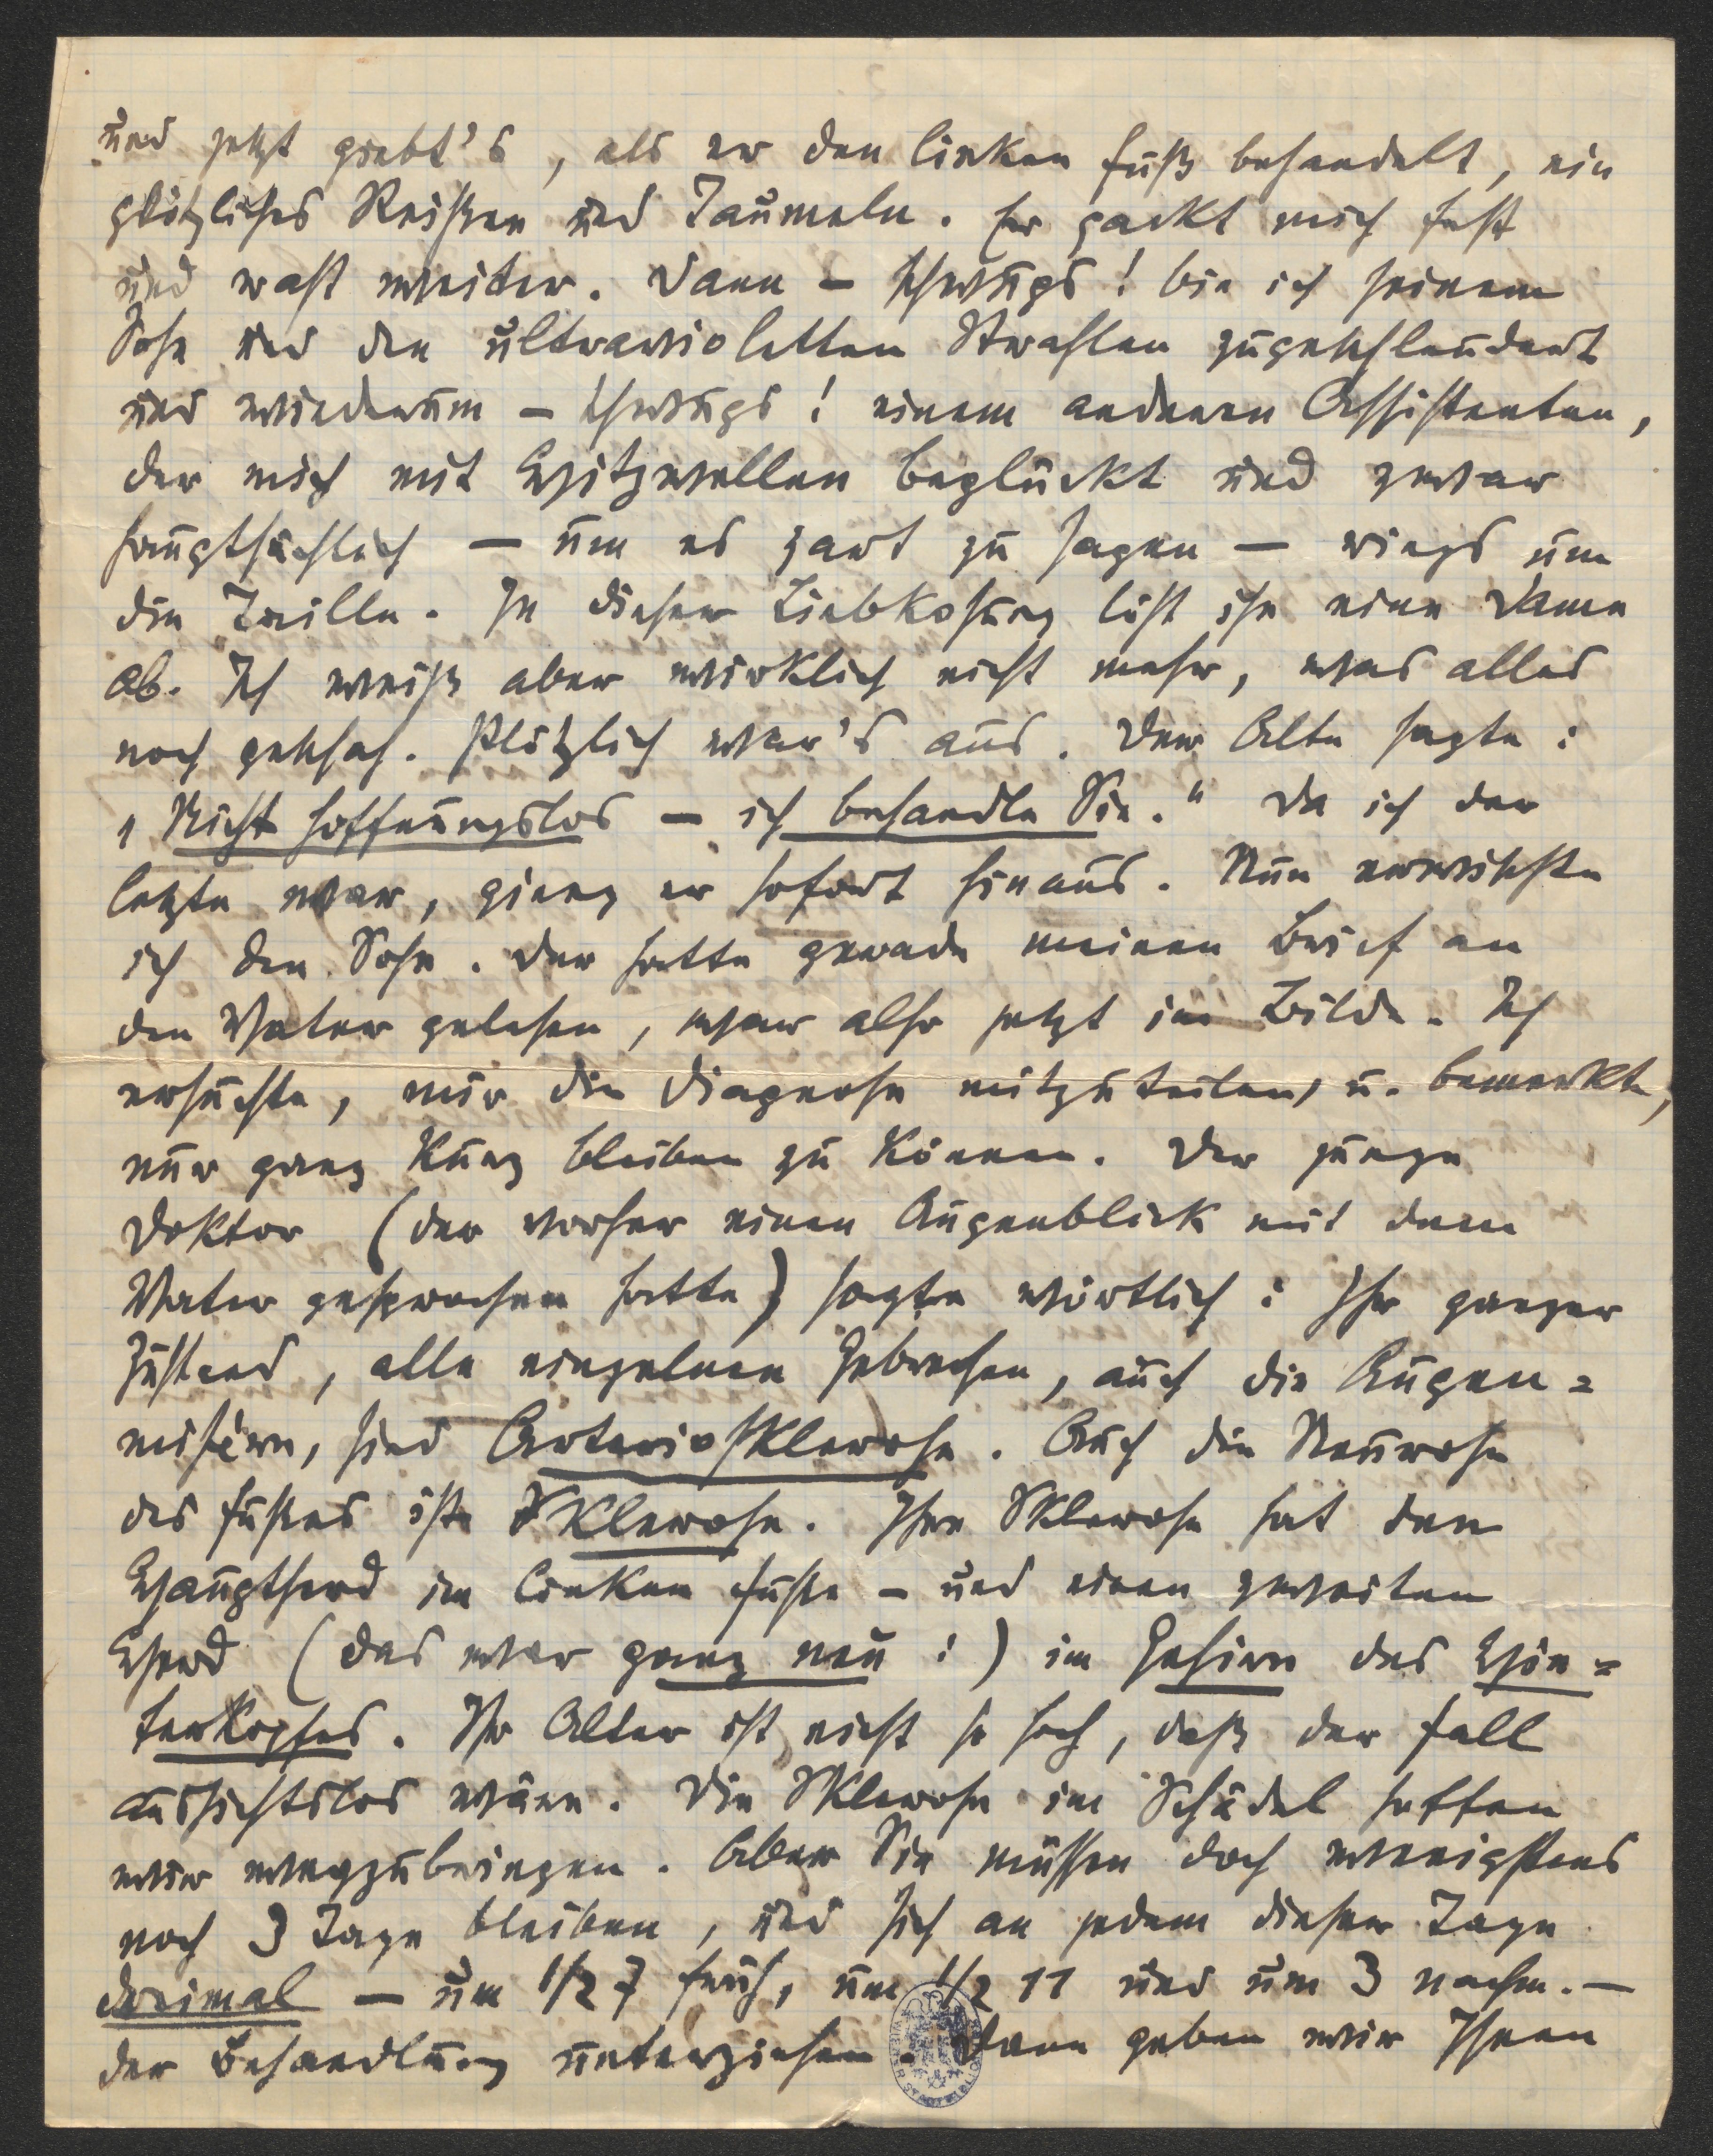 und jetzt giebt's, als er den linken Fuß behandelt, ein
plötzliches Reißen und Taumeln. Er packt mich fest
und rast weiter. Dann – schwups! bin ich seinem
Sohn und den ultravioletten Strahlen zugeschleudert
und wiederum – schwups! einem anderen Assistenten,
der mich mit Hitzwellen beglückt und zwar
hauptsächlich — um es zart zu sagen — rings um
die Taille. In dieser Liebkosung löst ihn eine Dame
ab. Ich weiß aber wirklich nicht mehr, was alles
noch geschah. Plötzlich war's aus. Der Alte sagte:
„Nicht hoffnungslos — ich behandle Sie." Da ich der
letzte war, gieng er sofort hinaus. Nun erwischte
ich den Sohn. Der hatte gerade meinen Brief an
den Vater gelesen, war also jetzt im Bilde. Ich
ersuchte, mir die Diagnose mitzuteilen, u. bemerkte,
nur ganz kurz bleiben zu können. Der junge
Doktor (der vorher einen Augenblick mit dem
Vater gesprochen hatte) sagte wörtlich: Ihr ganzer
Zustand, alle einzelnen Gebrechen, auch die Augen=
misèren, sind Arteriosklerose. Auch die Neurose
des Fußes ist Sklerose. Ihre Sklerose hat den
Hauptherd im linken Fuße – und einen zweiten
Herd (das war ganz neu!) im Gehirn des Hin=
terkopfes. Ihr Alter ist nicht so hoch, daß der Fall
aussichtslos wäre. Die Sklerose im Schädel hoffen
wir wegzubringen. Aber Sie müssen doch wenigstens
noch 3 Tage bleiben, und sich an jedem dieser Tage
dreimal — um 1/2 7 früh, um 1/2 11 und um 3 nachm. —
der Behandlung unterziehen. Dann geben wir Ihnen